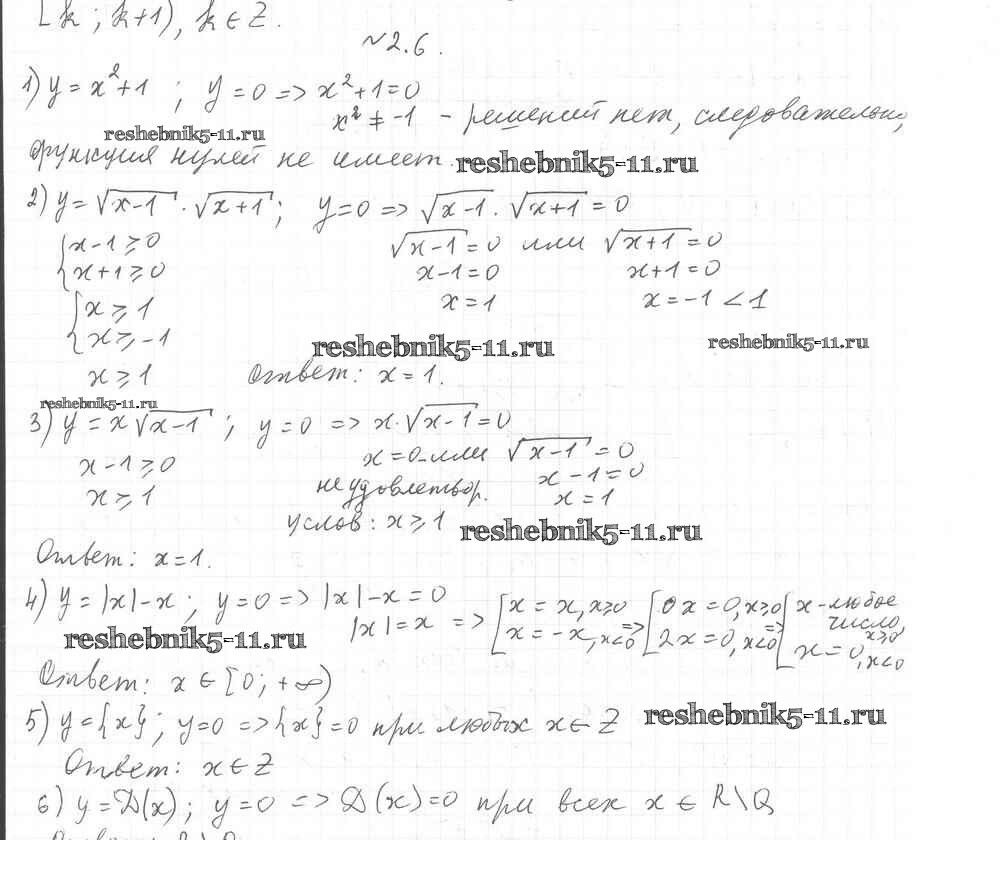 [k; k+1), k ∈ Z.
№2.6.
1) y = x²+1 ; y = 0 => x²+1=0
x² ≠ -1 - решений нет, следовательно,
reshebnik5-11.ru
функция нулей не имеет. reshebnik5-11.ru
2) y = √x-1 · √x+1 ; y=0 => √x-1 · √x+1 = 0
{ x-1 ≥ 0 √x-1 = 0 или √x+1 = 0
x+1 ≥ 0 x-1=0 x+1=0
{ x ≥ 1 x=1 x=-1 < 1
x ≥ -1
reshebnik5-11.ru reshebnik5-11.ru
x ≥ 1 Ответ: x=1.
reshebnik5-11.ru
3) y = x√x-1 ; y=0 => x·√x-1 = 0
x-1 ≥ 0 x=0 или √x-1 = 0
x ≥ 1 не удовлетвор. x-1=0
x=1
услов: x ≥ 1 reshebnik5-11.ru
Ответ: x=1.
4) y = |x|-x ; y=0 => |x|-x=0
|x|=x => [ x=x, x≥0 => [ 0x=0, x≥0 => [ x-любое число, x≥0
x=-x, x<0 2x=0, x<0 x=0, x<0
reshebnik5-11.ru
Ответ: x ∈ [0; +∞)
5) y={x}; y=0 => {x}=0 при любых x ∈ Z reshebnik5-11.ru
Ответ: x ∈ Z
6) y=D(x); y=0 => D(x)=0 при всех x ∈ R\Q